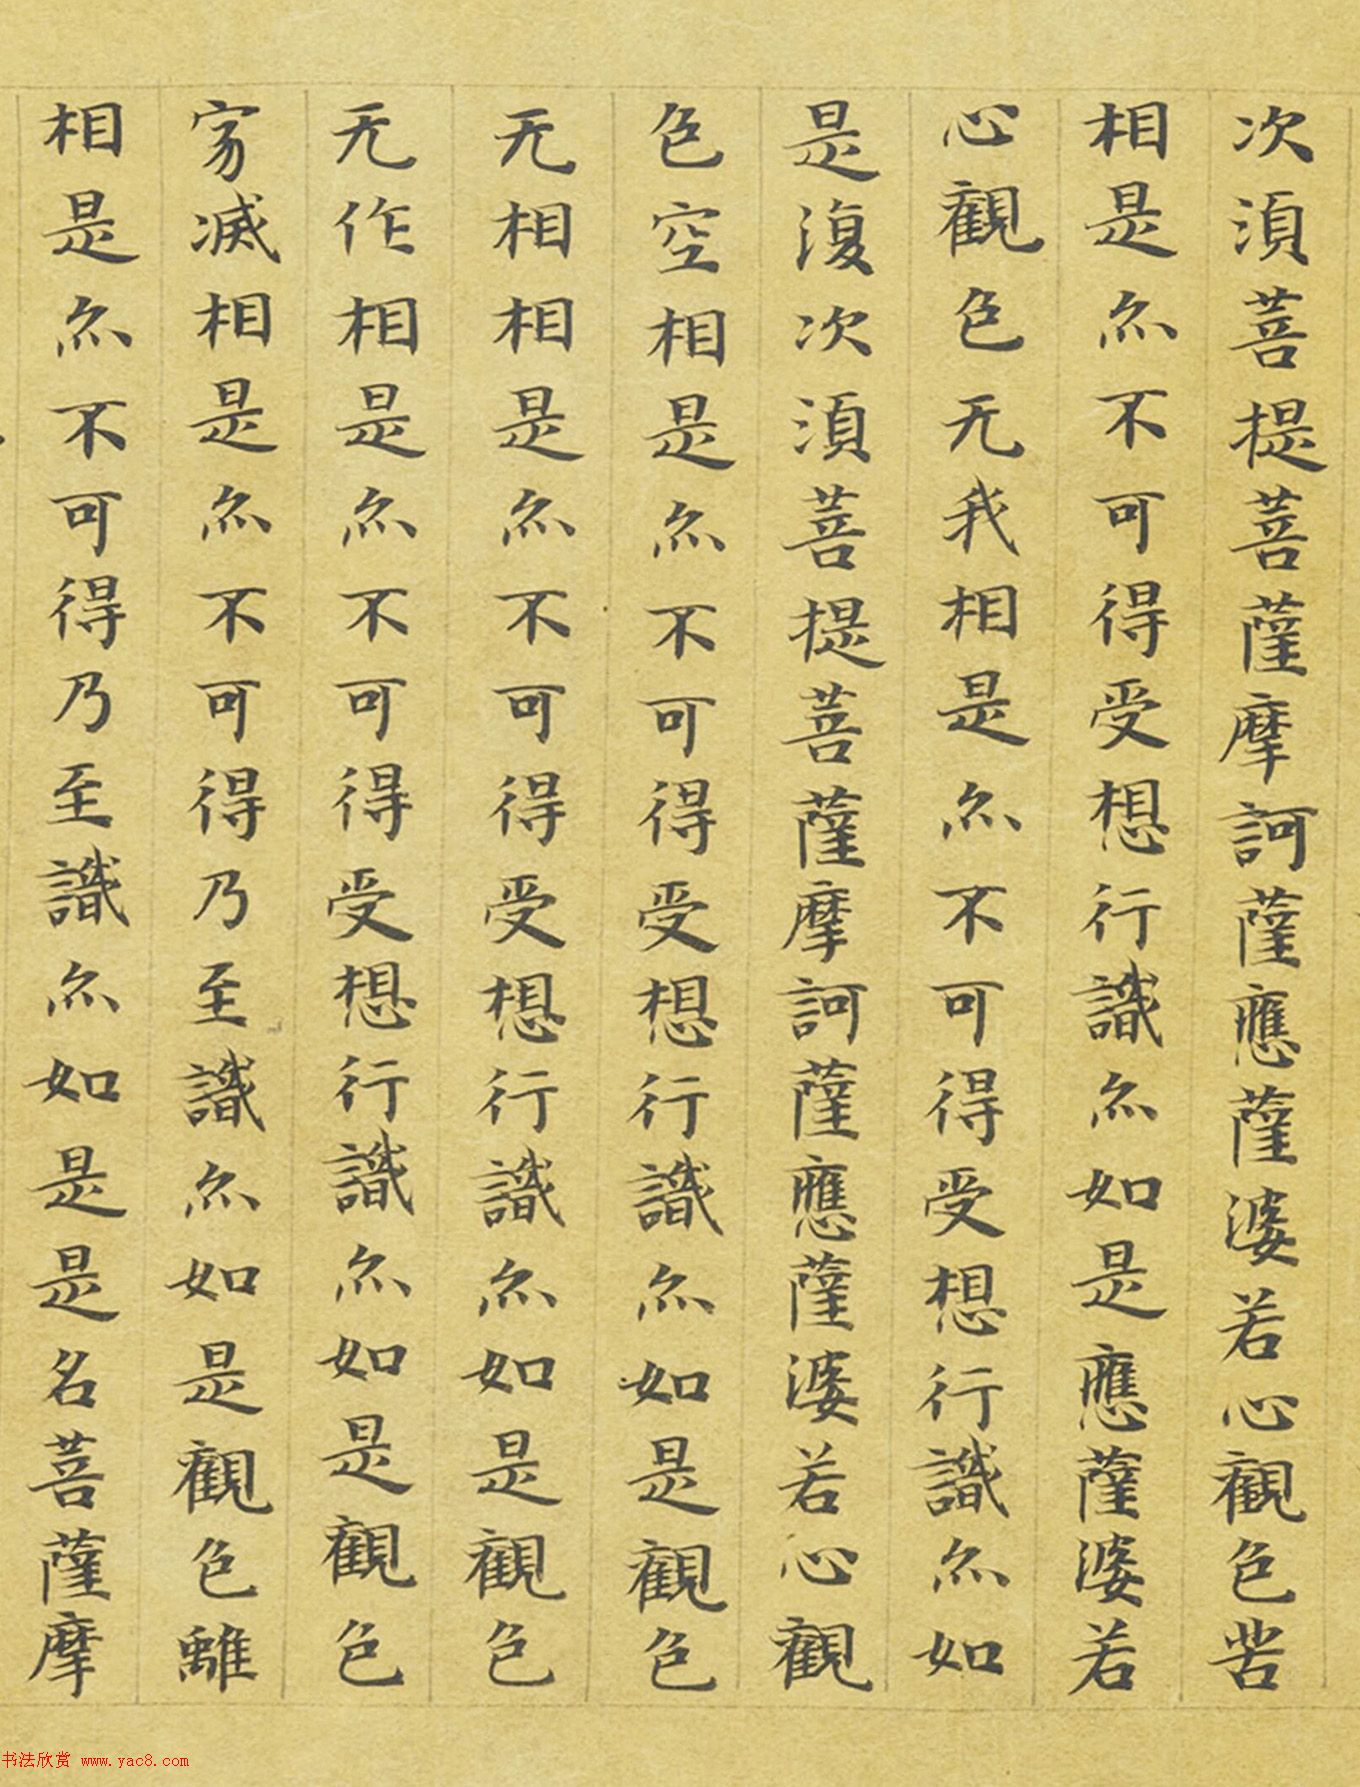 次須菩提菩薩摩訶薩應薩婆若心觀色苦
相是亦不可得受想行識亦如是應薩婆若
心觀色无我相是亦不可得受想行識亦如
是復次須菩提菩薩摩訶薩應薩婆若心觀
色空相是亦不可得受想行識亦如是觀色
无相相是亦不可得受想行識亦如是觀色
无作相是亦不可得受想行識亦如是觀色
寂滅相是亦不可得乃至識亦如是觀色離
相是亦不可得乃至識亦如是是名菩薩摩
书法欣赏 www.yac8.com